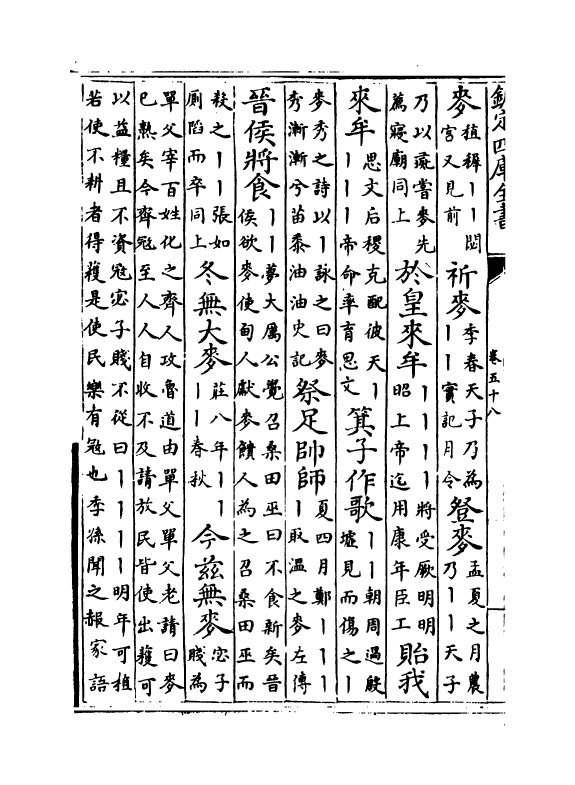 欽定四庫全書
卷五十八
麥植穉丨丨閟宮又見前 祈麥季春天子乃為丨丨實記月令 登麥孟夏之月農乃丨丨天子
乃以彘嘗麥先薦寢廟同上 於皇來牟丨丨丨丨將受厥明明昭上帝迄用康年臣工 貽我
來牟思文后稷克配彼天丨丨丨丨帝命率育思文 箕子作歌丨丨朝周過殷墟見而傷之丨
麥秀之詩以丨詠之曰麥秀漸漸兮苗黍油油史記 祭足帥師夏四月鄭丨丨丨丨取溫之麥左傳
晉侯將食丨丨夢大厲公覺召桑田巫曰不食新矣晉侯欲麥使甸人獻麥饋人為之召桑田巫而
殺之丨丨張如厠陷而卒同上 冬無大麥莊八年丨丨丨丨春秋 今茲無麥宓子賤為
單父宰百姓化之齊人攻魯道由單父單父老請曰麥已熟矣今齊寇至人人自收不及請放民皆使出穫可
以益糧且不資寇宓子賤不從曰丨丨丨丨明年可植若使不耕者得穫是使民樂有寇也季孫聞之赧家語